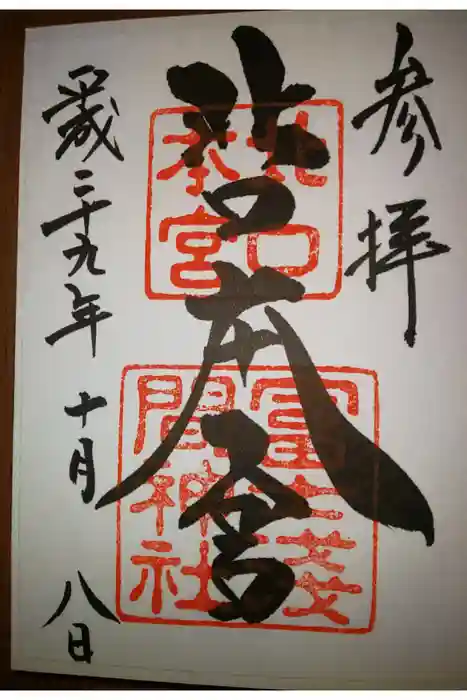 参拝
北口本宮
北口
本宮
冨士淺
間神社
平成二十九年十月八日